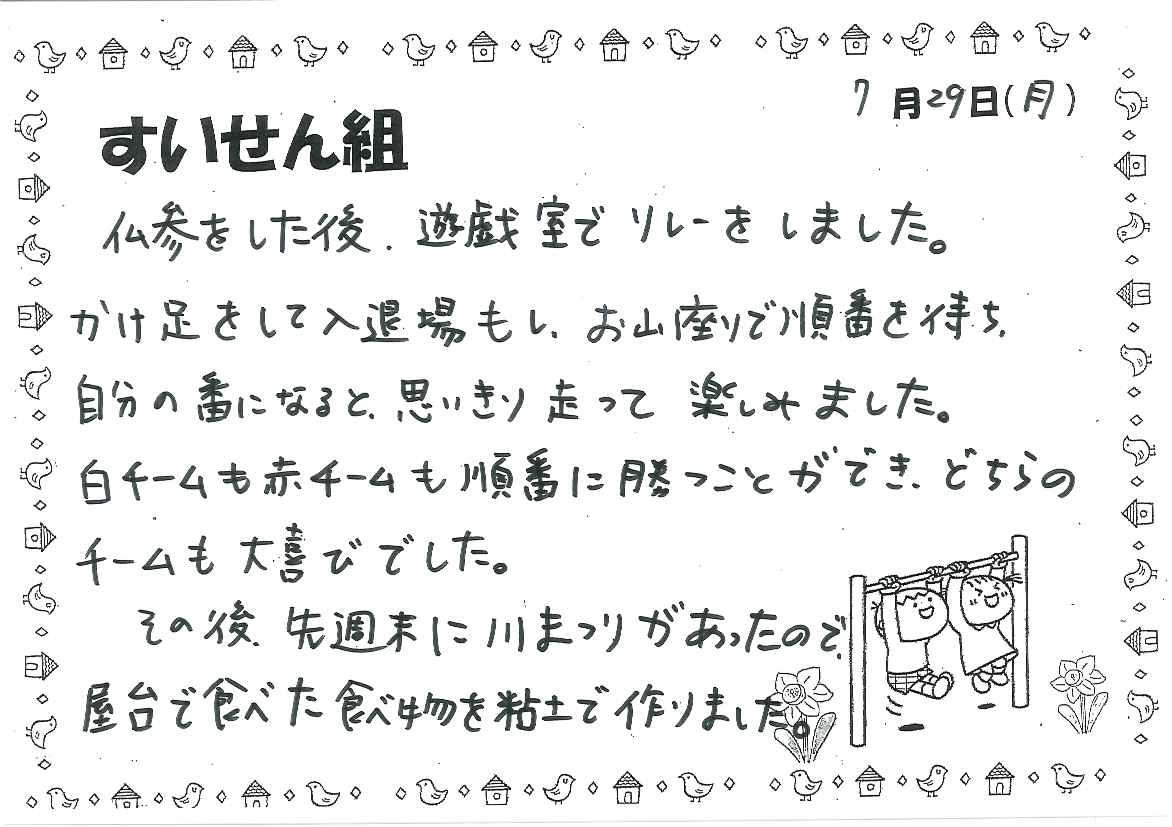 7月29日(月)
すいせん組
仏参をした後、遊戯室でリレーをしました。
かけ足をして入退場もし、お山座りで順番を待ち、
自分の番になると、思いきり走って楽しみました。
白チームも赤チームも順番に勝つことができ、どちらの
チームも大喜びでした。
その後、先週末に川まつりがあったので、
屋台で食べた食べ物を粘土で作りました。